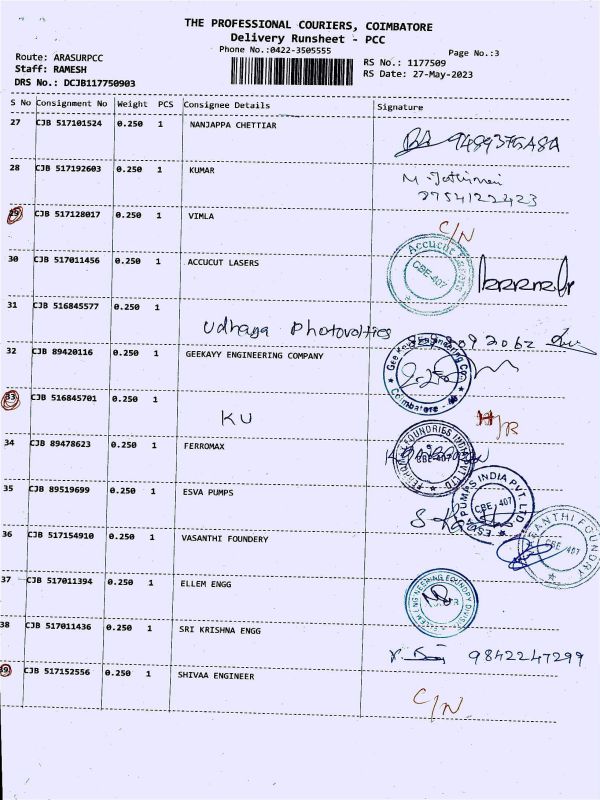 THE PROFESSIONAL COURIERS, COIMBATORE
Delivery Runsheet - PCC
Phone No.:0422-3505555
Page No.:3
Route: ARASURPCC
Staff: RAMESH
DRS No.: DCJB117750903
RS No.: 1177509
RS Date: 27-May-2023
S No Consignment No Weight PCS Consignee Details Signature
27 CJB 517101524 0.250 1 NANJAPPA CHETTIAR
28 CJB 517192603 0.250 1 KUMAR
29 CJB 517128017 0.250 1 VIMLA C/N
30 CJB 517011456 0.250 1 ACCUCUT LASERS
CBE-407
31 CJB 516845577 0.250 1
Udhaya Photovoltics
32 CJB 89420116 0.250 1 GEEKAYY ENGINEERING COMPANY
Coimbatore
33 CJB 516845701 0.250 1
KU
34 CJB 89478623 0.250 1 FERROMAX
35 CJB 89519699 0.250 1 ESVA PUMPS
ESVA PUMPS INDIA PVT. LTD.
CBE-407
36 CJB 517154910 0.250 1 VASANTHI FOUNDERY
CBE-407
37 CJB 517011394 0.250 1 ELLEM ENGG
38 CJB 517011436 0.250 1 SRI KRISHNA ENGG 9842247299
39 CJB 517152556 0.250 1 SHIVAA ENGINEER
C/N